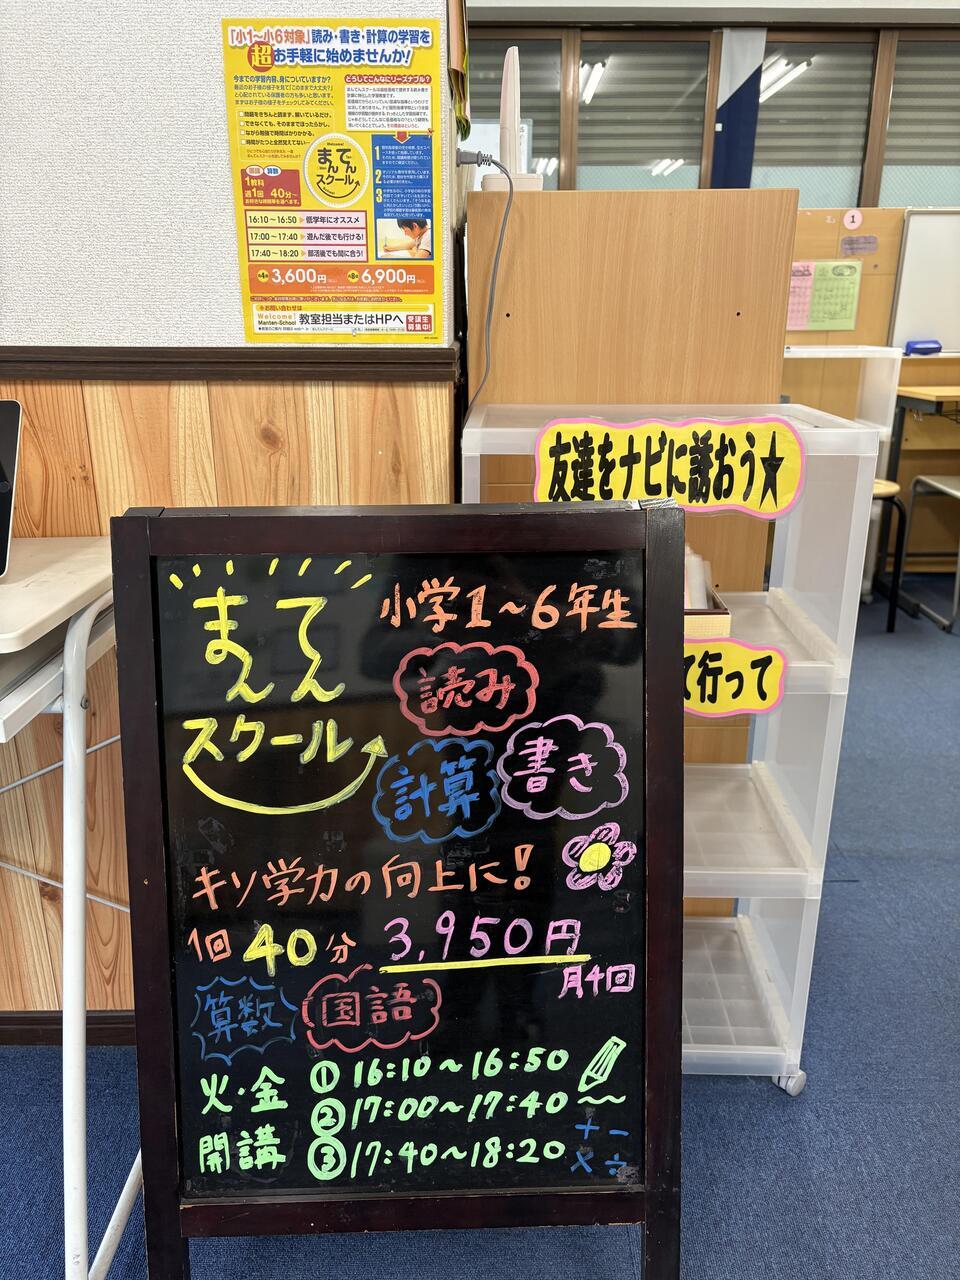 「小1～小6対象」読み・書き・計算の学習を
超お手軽に始めませんか!
今までの学習内容、身についていますか?
どうしてこんなにリーズナブル?
国語 算数
1教科
週1回 40分～
Welcome!
まんてん
スクール
1
2
3
16:10～16:50 低学年にオススメ
17:00～17:40 遊んだ後でも行ける!
17:40～18:20 部活後でも間に合う!
月4回 3,600円 月8回 6,900円
お問い合わせは
Welcome! Manten-School 教室担当またはHPへ 受講生募集中!
1
友達をナビに誘おう★
て行って
まんてん
スクール
小学1～6年生
読み
計算
書き
キソ学力の向上に!
1回40分 3,950円
月4回
算数 国語
火・金 ①16:10～16:50
②17:00～17:40
開講 ③17:40～18:20
+ −
× ÷